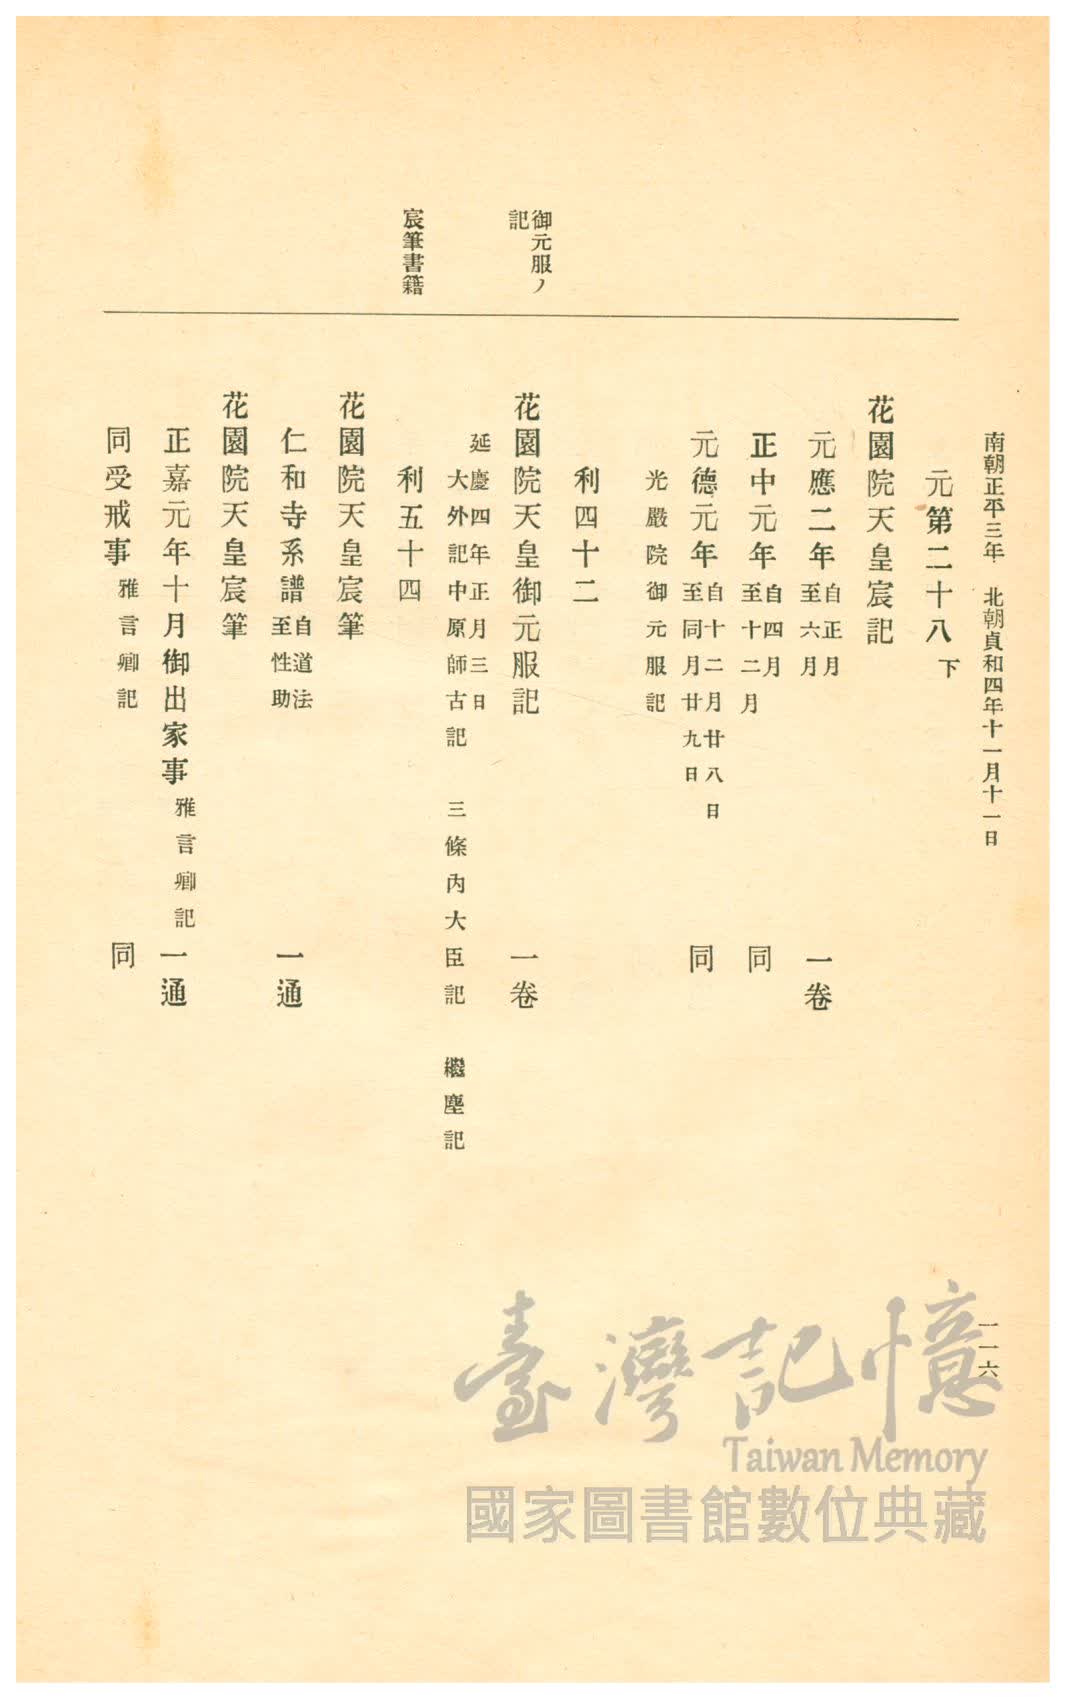 南朝正平三年　北朝貞和四年十一月十一日
一一六
御元服ノ
記
宸筆書籍
元第二十八下
花園院天皇宸記
元應二年自正月
至六月　一卷
正中元年自四月
至十二月　同
元德元年自十二月廿八日
至同月廿九日　同
光嚴院御元服記
利四十二
花園院天皇御元服記　一卷
延慶四年正月三日
大外記中原師古記　三條內大臣記　繼塵記
利五十四
花園院天皇宸筆
仁和寺系譜自道法
至性助　一通
花園院天皇宸筆
正嘉元年十月御出家事雅言卿記　一通
同受戒事雅言卿記　同
臺灣記憶
Taiwan Memory
國家圖書館數位典藏